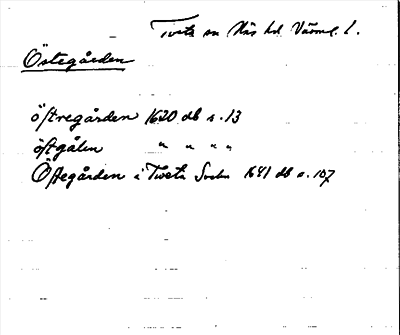 Tveta sn Näs hd Värml. l.
Östegården
östregården 1620 db s. 13
östgåln " " " "
Östegården i Tveta Sochn 1641 db s. 107